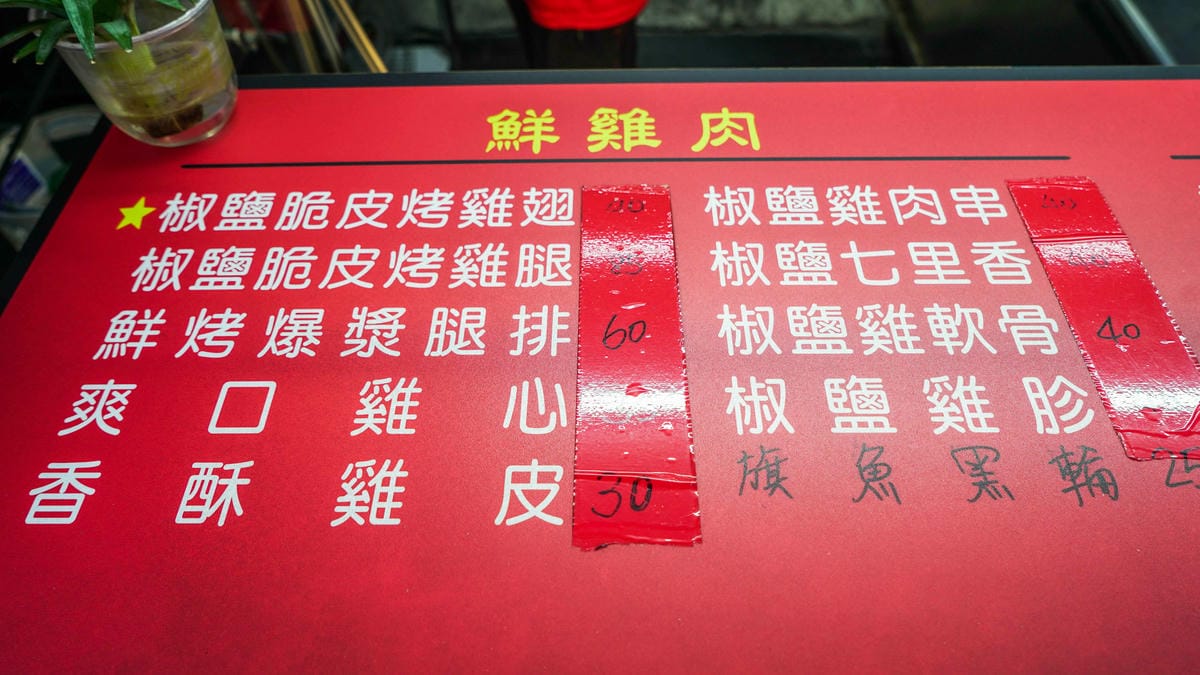 鮮雞肉
★椒鹽脆皮烤雞翅
椒鹽脆皮烤雞腿
鮮烤爆漿腿排 60
爽口雞心
香酥雞皮 30
椒鹽雞肉串
椒鹽七里香
椒鹽雞軟骨 40
椒鹽雞胗
旗魚黑輪